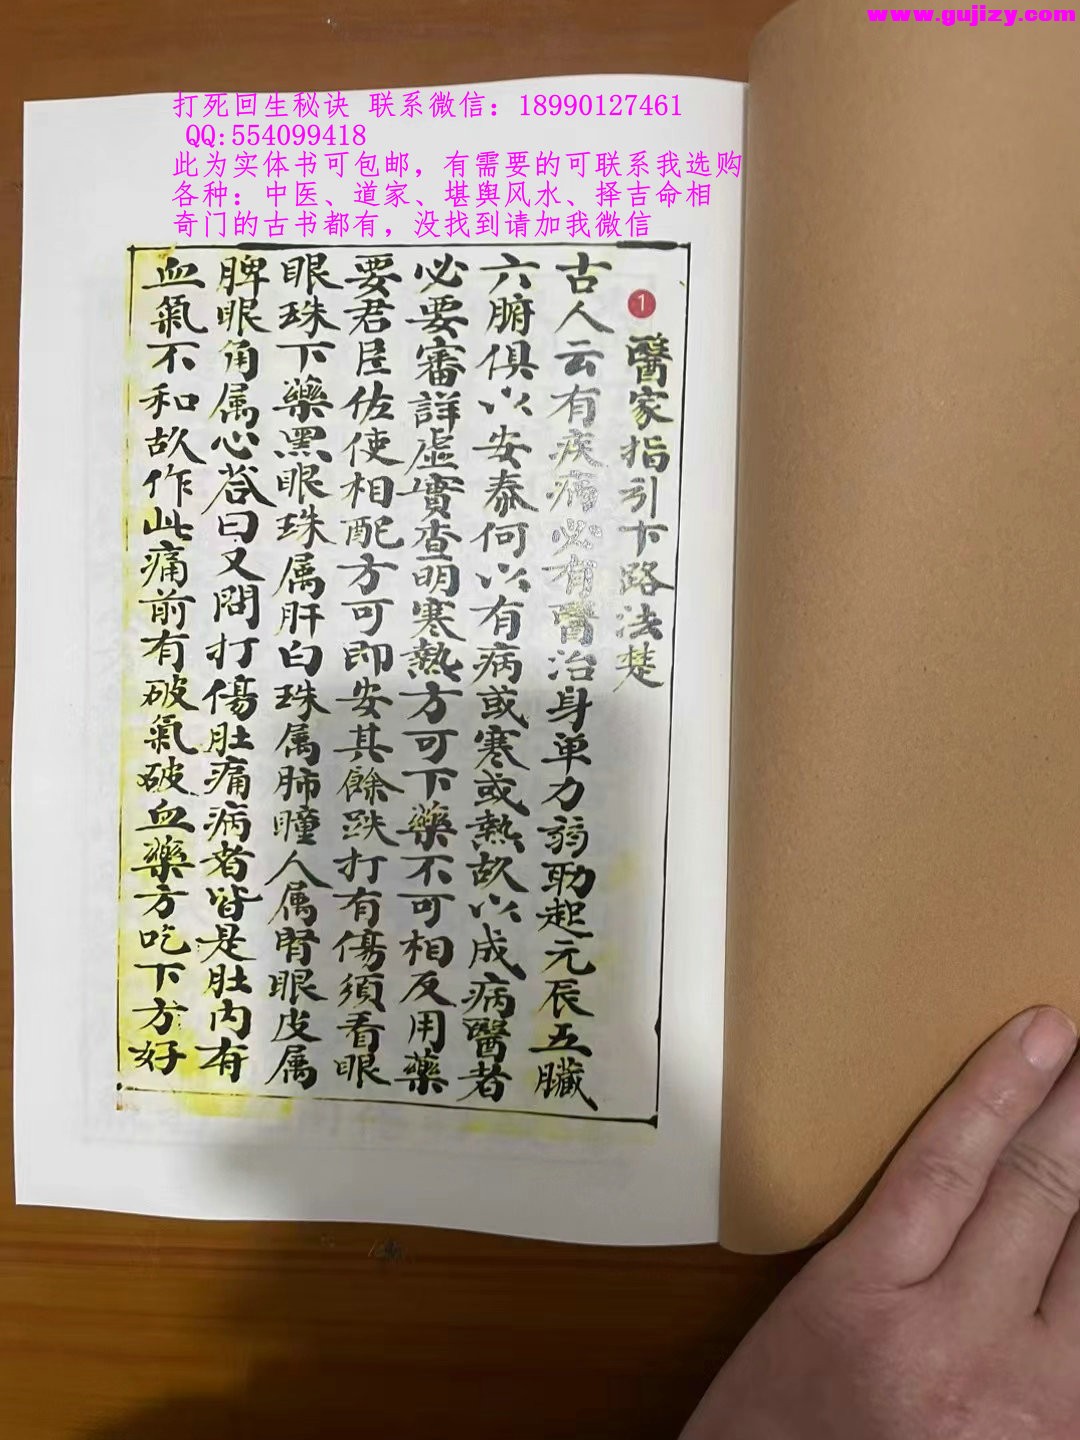 www.gujizy.com
打死回生秘诀 联系微信：18990127461
QQ:554099418
此为实体书可包邮，有需要的可联系我选购
各种：中医、道家、堪舆风水、择吉命相
奇门的古书都有，没找到请加我微信
1
醫家指引下路法楚
古人云有疾病必有醫治身单力弱助起元辰五臟
六腑俱以安泰何以有病或寒或熱故以成病醫者
必要審詳虛實查明寒熱方可下藥不可相反用藥
要君臣佐使相配方可即安其餘跌打有傷須看眼
眼珠下藥黑眼珠属肝白珠属肺瞳人属腎眼皮属
脾眼角属心答曰又問打傷肚痛病者皆是肚内有
血氣不和故作此痛前有破氣破血藥方吃下方好